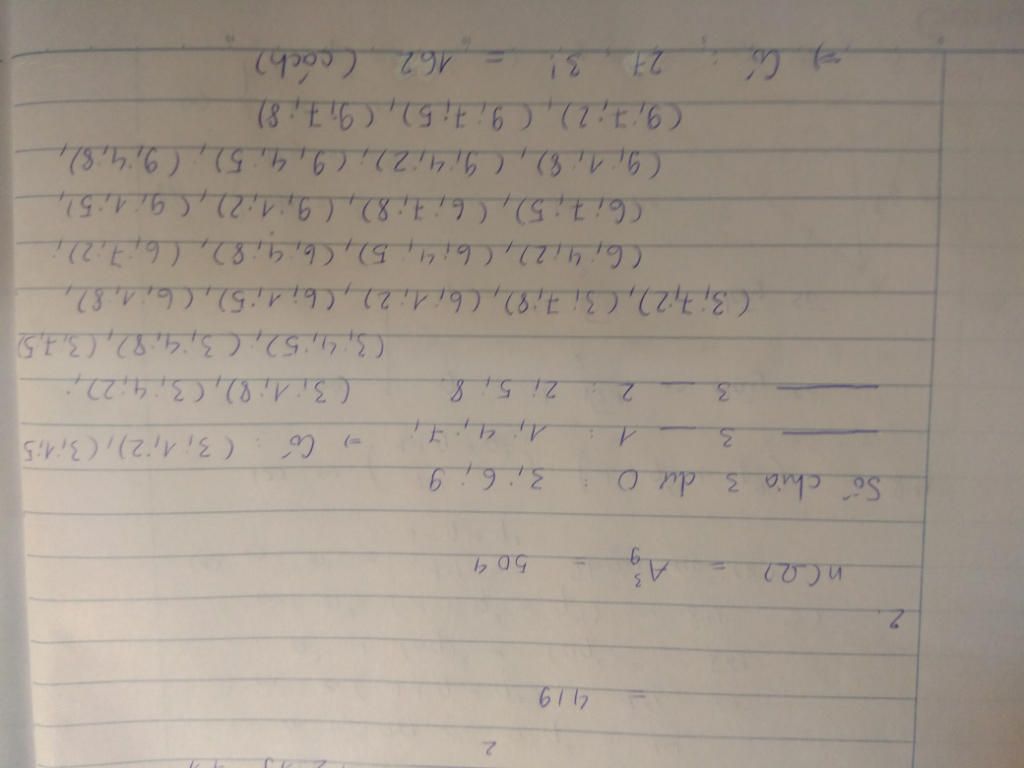 2
= 419
2.
n(Ω) = A³₉ = 504
Số chia 3 dư 0 : 3 ; 6 ; 9
——— 3 — 1 : 1 ; 4 ; 7 ; ⇒ Có : (3;1;2), (3;1;5
——— 3 — 2 : 2 ; 5 ; 8. (3;1;8), (3;4;2) ;
(3;4;5), (3;4;8), (3;7;5)
(3;7;2), (3;7;8), (6;1;2), (6;1;5), (6;1;8),
(6;4;2), (6;4;5), (6;4;8), (6;7;2) ;
(6;7;5), (6;7;8), (9;1;2), (9;1;5),
(9;1;8), (9;4;2), (9;4;5), (9;4;8),
(9;7;2), (9;7;5), (9;7;8)
⇒ Có : 27 . 3! = 162 (cách)